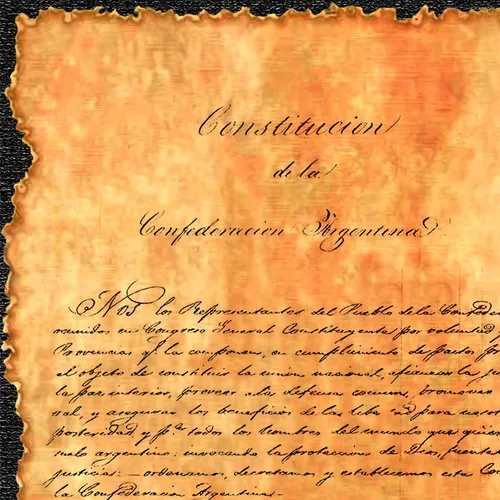 Constitucion
de la
Confederacion Argentina
Nos los Representantes del Pueblo de la Confede
reunidos en Congreso General Constituyente por voluntad
Provincias q.e la componen, en cumplimiento de pactos
el objeto de constituir la union nacional, afianzar la ju
la paz interior, proveer a la defensa comun, promover
ral, y asegurar los beneficios de la libe ad para
posteridad, y p.a todos los hombres del mundo que
suelo argentino: invocando la proteccion de Dios, fuente
justicia: ordenamos, decretamos y establecemos esta Con
la Confederacion Argentina.